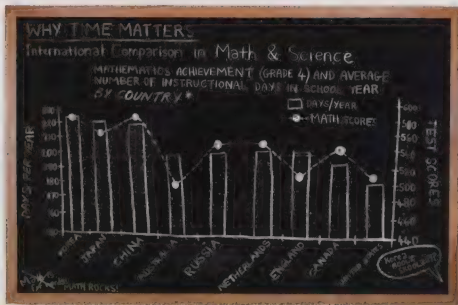 WHY TIME MATTERS
International Comparison in Math & Science
MATHEMATICS ACHIEVEMENT (GRADE 4) AND AVERAGE
NUMBER OF INSTRUCTIONAL DAYS IN SCHOOL YEAR
BY COUNTRY*
DAYS/YEAR
MATH SCORES
DAYS PER YEAR
TEST SCORES
600
560
540
520
500
480
460
440
KOREA
JAPAN
CHINA
AUSTRALIA
RUSSIA
NETHERLANDS
ENGLAND
CANADA
UNITED STATES
MATH ROCKS!